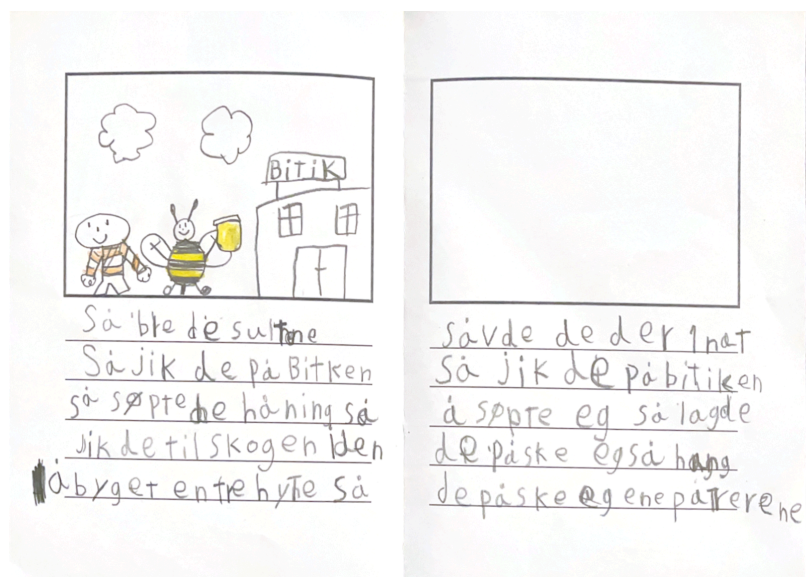 BitiK
Så ble de sultne
Så jik de på Bitken
så søpte de håning så
jik de til skogen iden
å byget en tre hyte så
såvde de der 1 nat
så jik de på bitiken
å søpte eg så lagde
de påske eg så hang
de påske eg ene på trerene